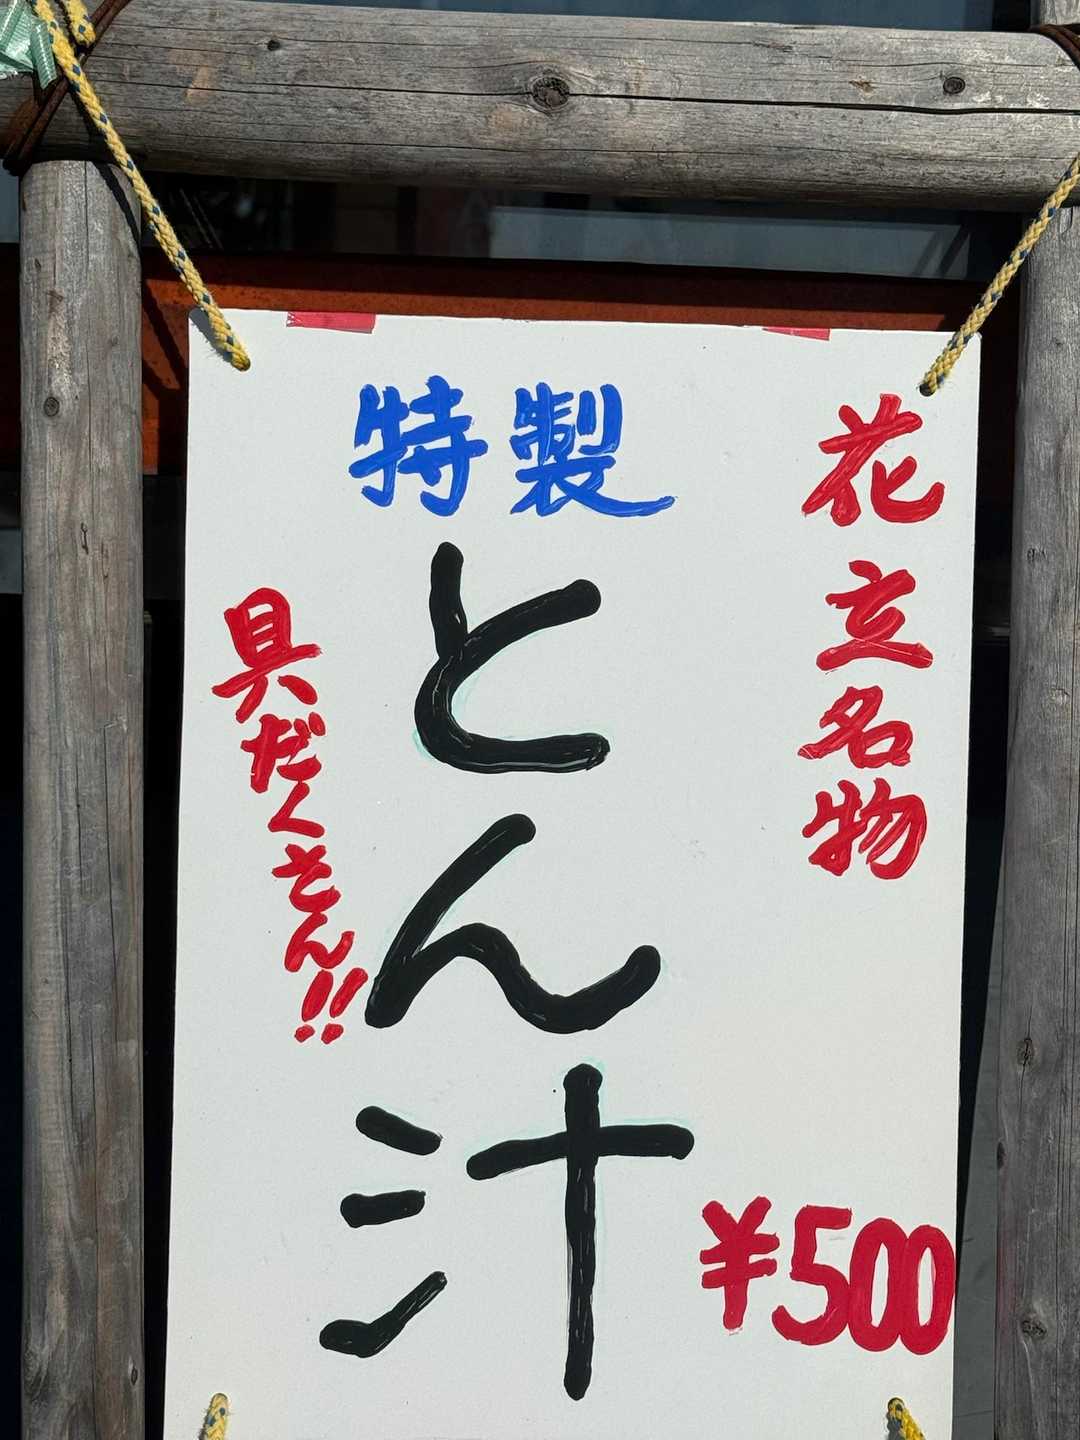 花立名物
特製
とん汁
具だくさん!!
¥500